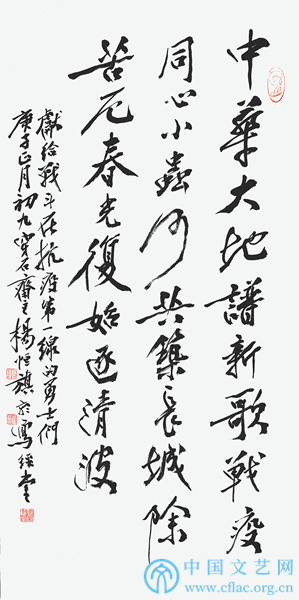 中華大地譜新歌戰疫
同心小蟲何共築長城除
苦厄春光復始逐清波
獻給戰斗在抗疫第一線的勇士們
庚子正月初九寶石齋主楊恒旗於寫經堂
中国文艺网
www.cflac.org.cn